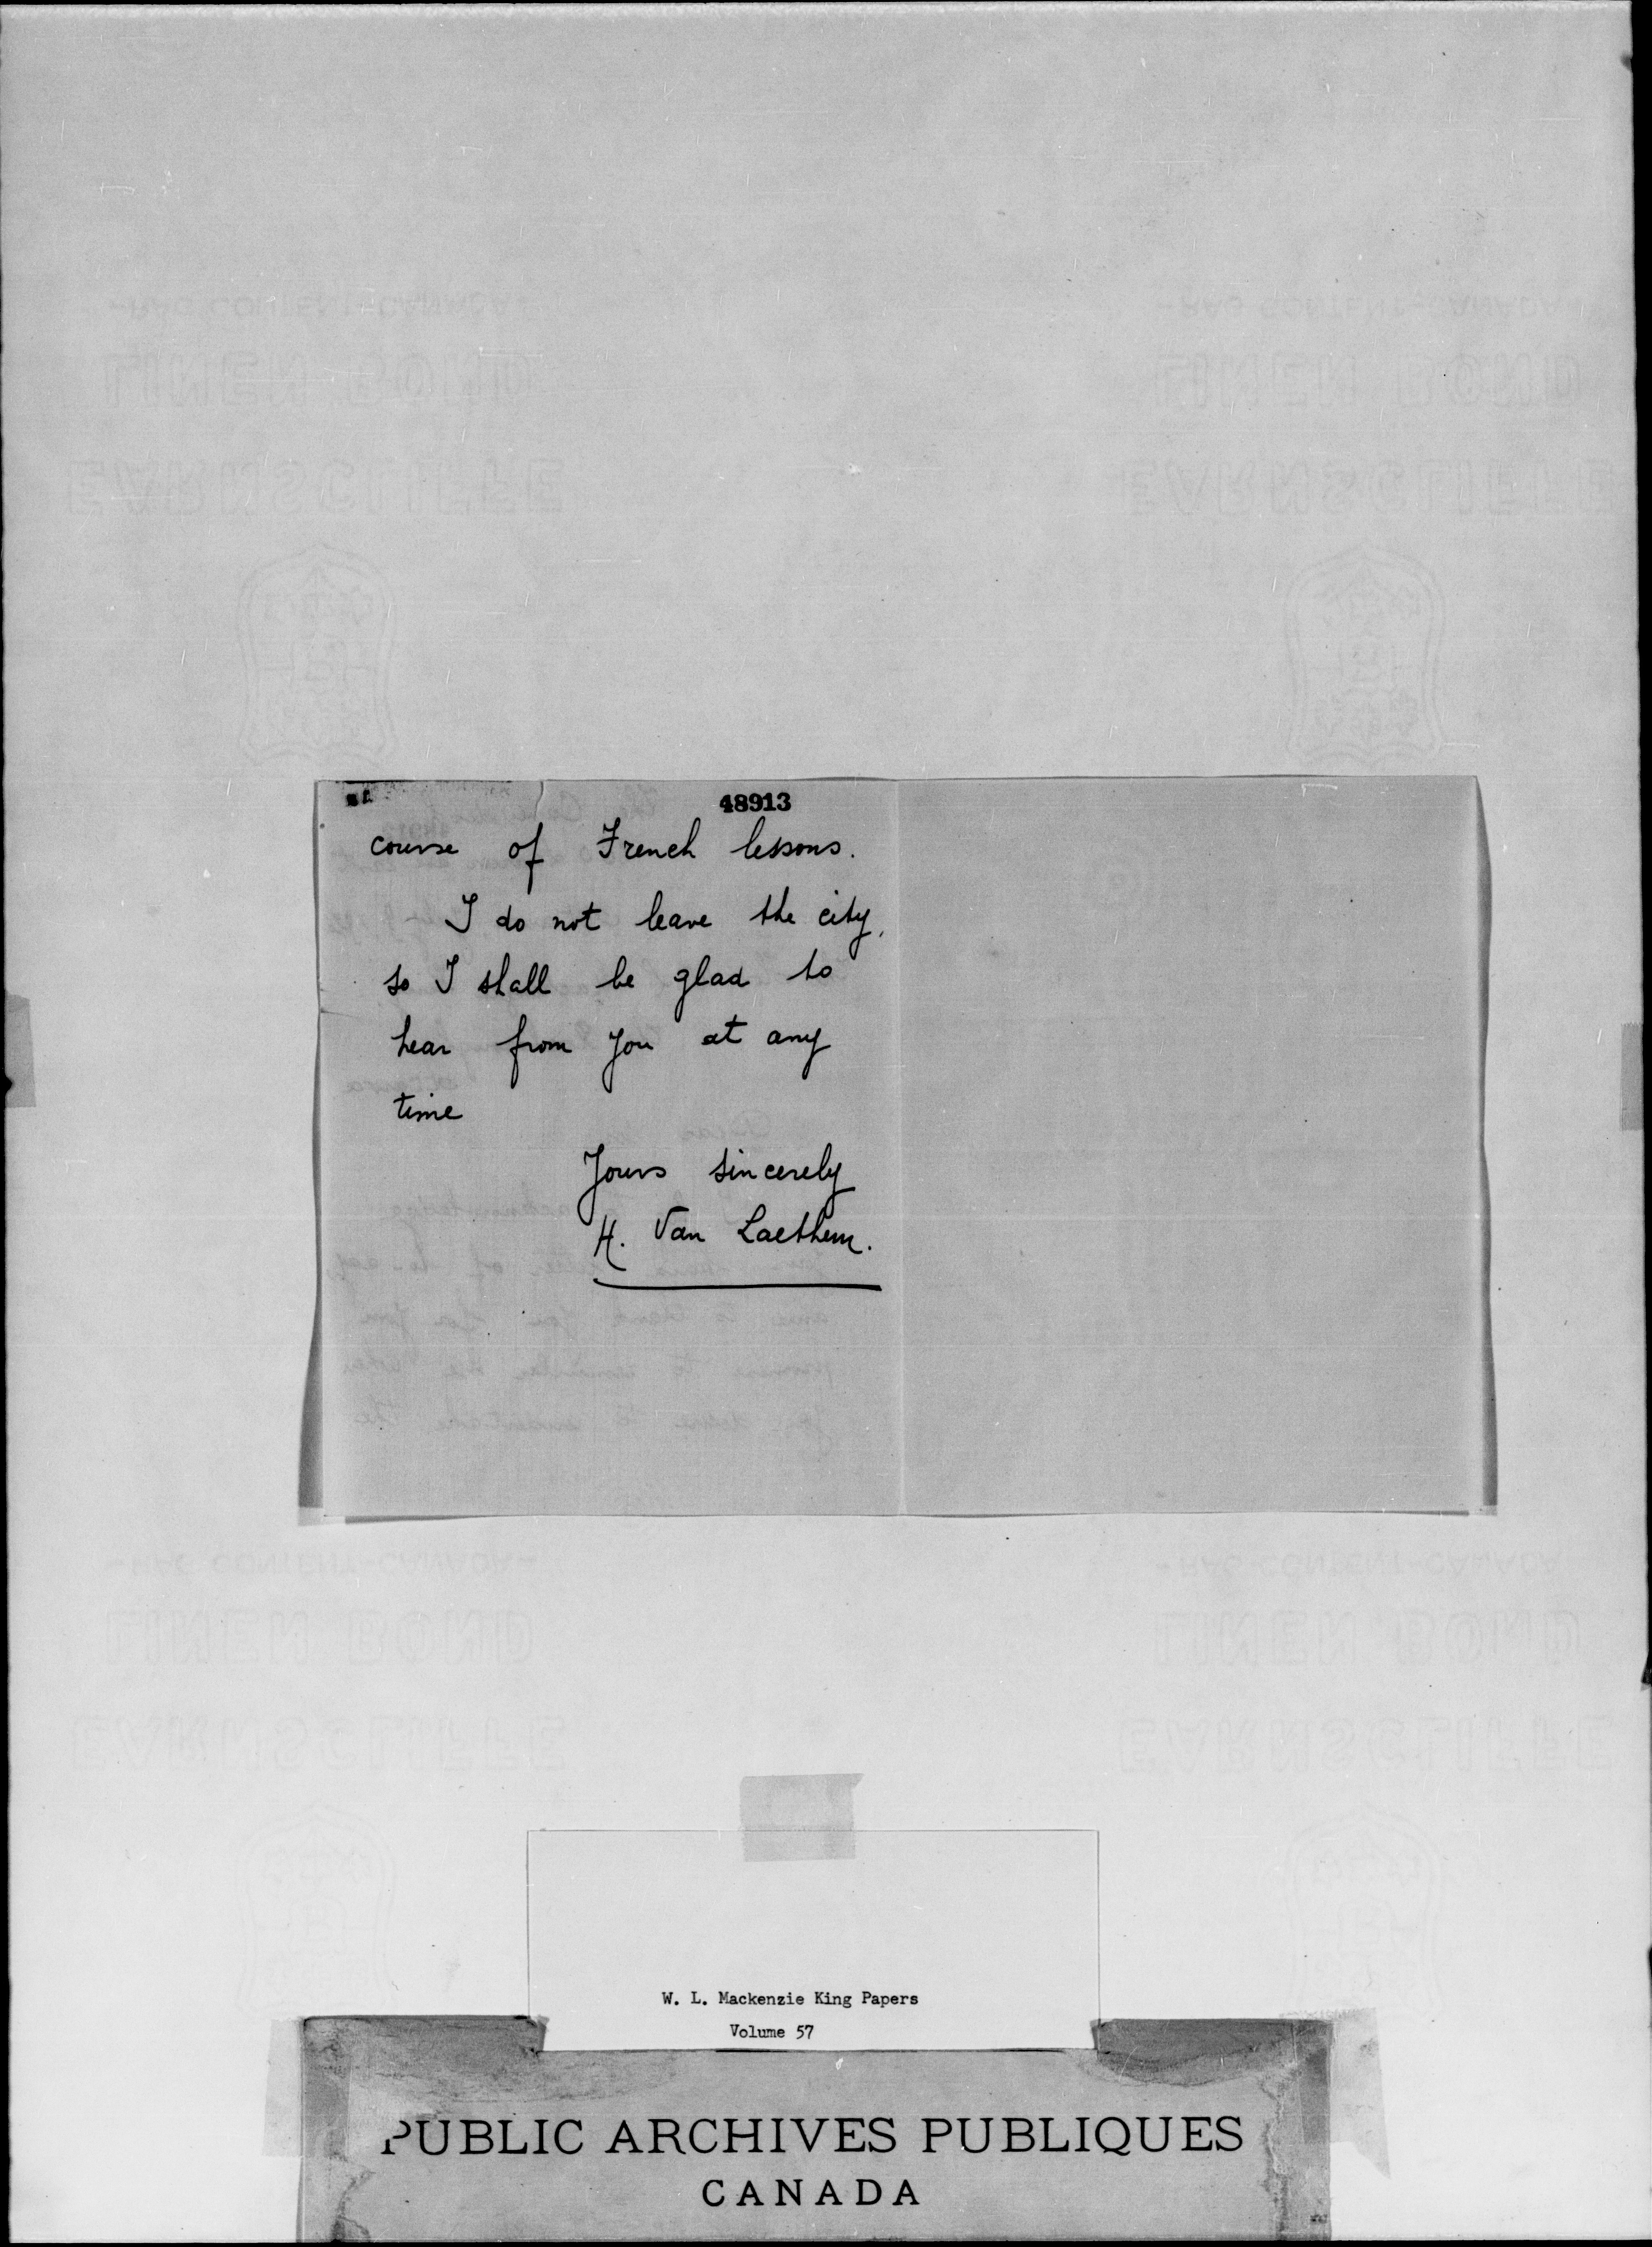 48913
course of French lessons.
I do not leave the city,
so I shall be glad to
hear from you at any
time
Yours sincerely
H. Van Laethem.
W. L. Mackenzie King Papers
Volume 57
PUBLIC ARCHIVES PUBLIQUES
CANADA